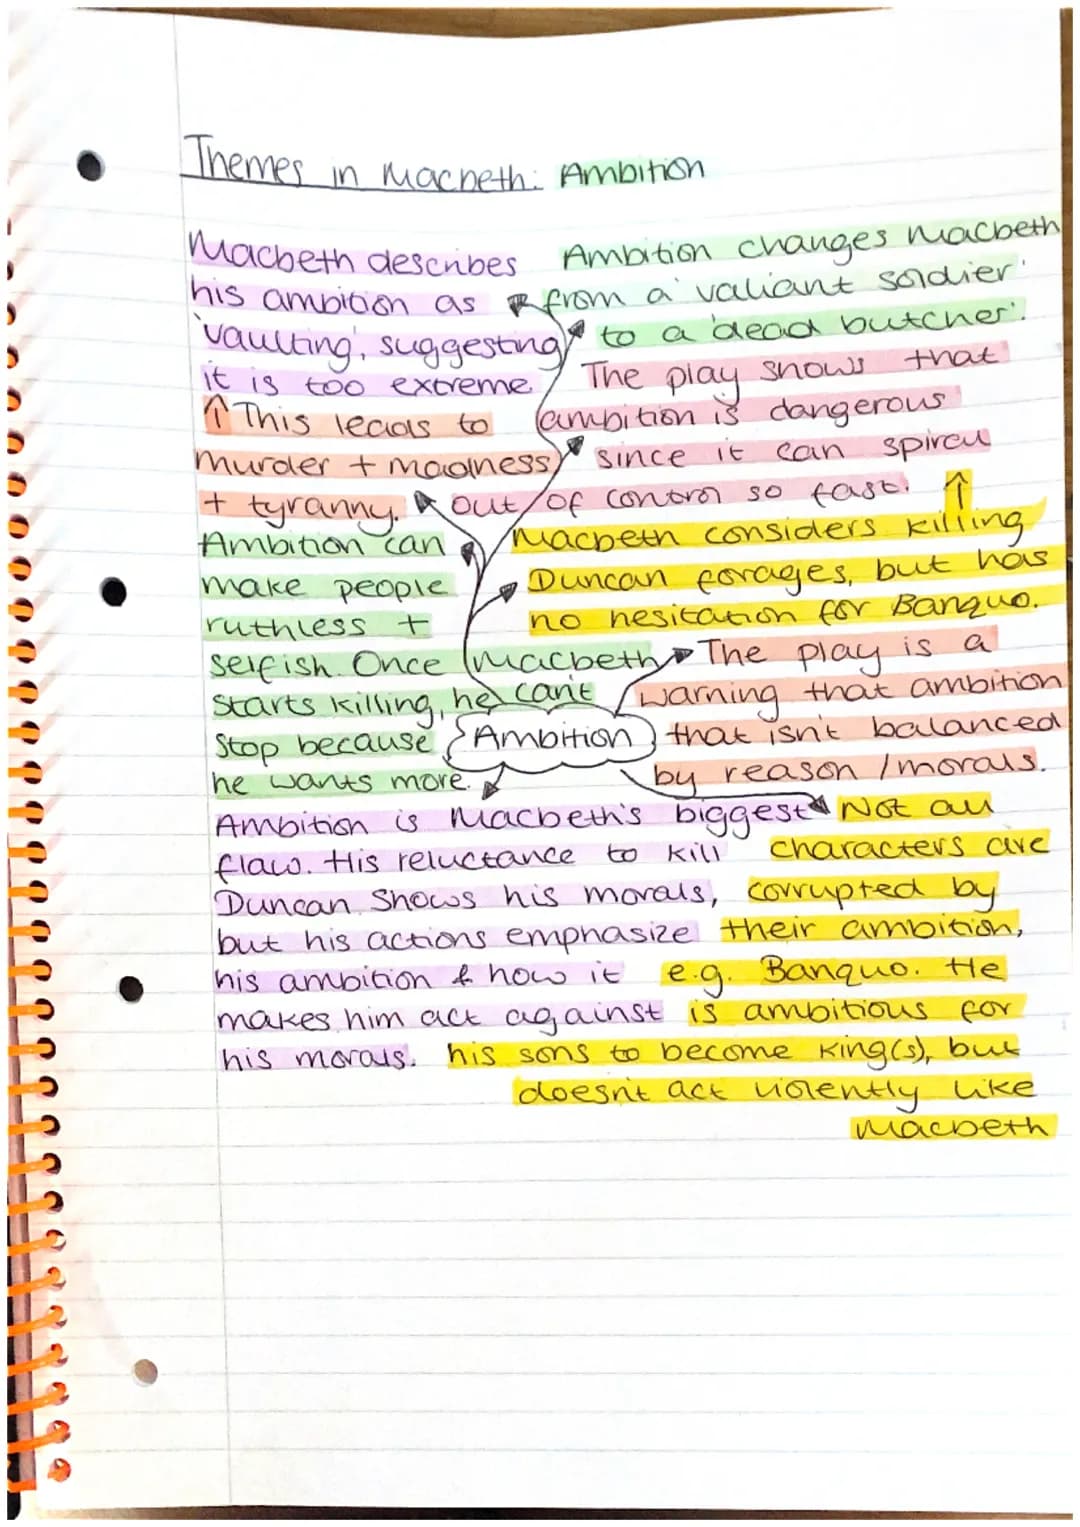 Themes in Macbeth: Ambition
Macbeth describes
his ambition as
'vaulting', suggesting
it is too extreme.
↑ This leads to
murder + madness
+ tyranny.
Ambition changes Macbeth
from a 'valiant soldier'
to a 'dead butcher'.
The play shows that
ambition is dangerous
since it can spiral
out of control so fast.
↑
Macbeth considers killing
Duncan for ages, but has
no hesitation for Banquo.
Ambition can
make people
ruthless +
selfish. Once Macbeth
starts killing, he can't
stop because
he wants more.
The play is a
warning that ambition
that isn't balanced
by reason / morals.
Ambition
Ambition is Macbeth's biggest
flaw. His reluctance to kill
Duncan shows his morals,
but his actions emphasize
his ambition & how it
makes him act against
his morals.
Not all
characters are
corrupted by
their ambition,
e.g. Banquo. He
is ambitious for
his sons to become king(s), but
doesn't act violently like
Macbeth